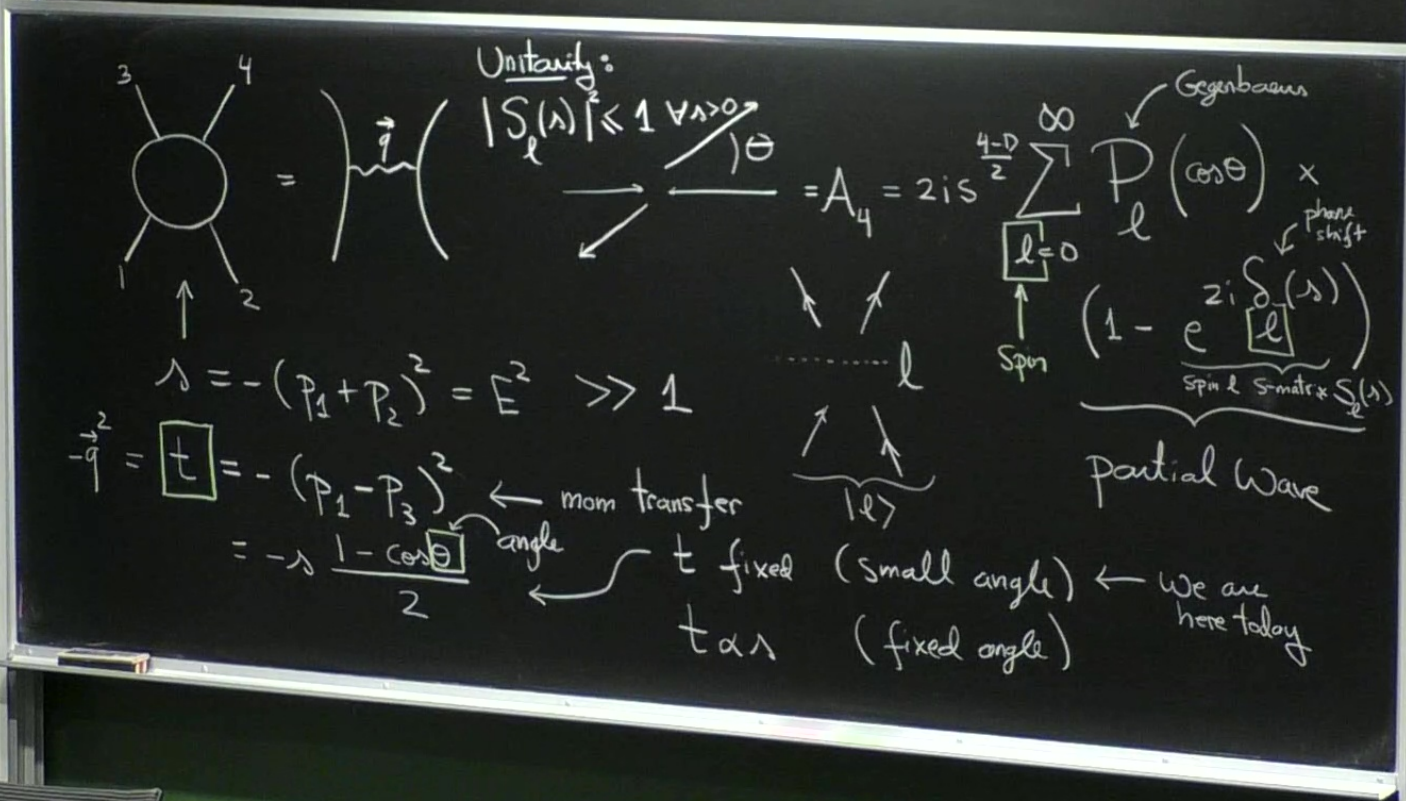 Unitarity:
|S_ℓ(s)|² ≤ 1 ∀s>0
3 4
1 2
=
q⃗
θ
= A₄ = 2is^{(4-D)/2} ∑_{ℓ=0}^{∞} P_ℓ(cosθ) ×
Gegenbauers
(1 - e^{2iδ_ℓ(s)})
phase shift
Spin
Spin ℓ S-matrix S_ℓ(s)
Partial Wave
ℓ
|ℓ⟩
s = -(p₁+p₂)² = E² >> 1
-q⃗² = t = -(p₁-p₃)² ← mom transfer
= -s (1 - cosθ)/2
angle
t fixed (small angle) ← We are here today
t α s (fixed angle)